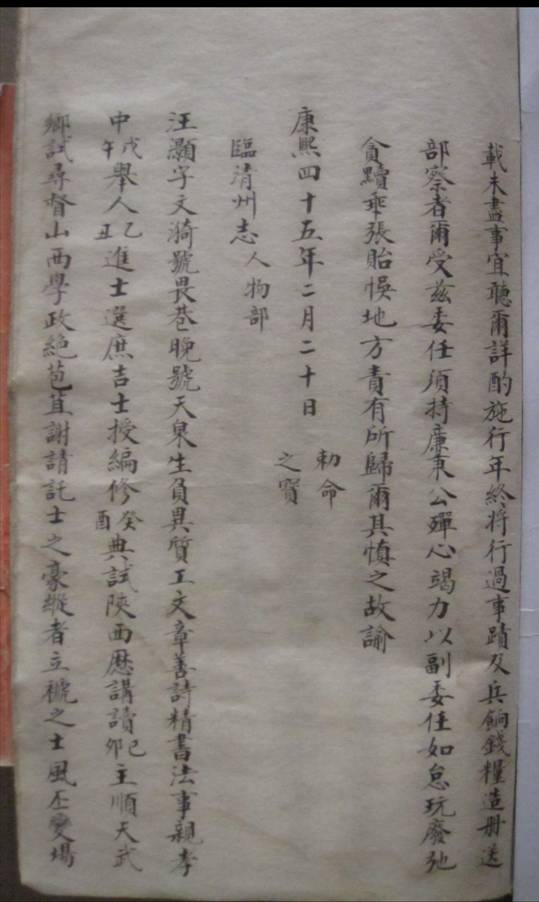 載未盡事宜聽爾詳酌施行年終將行過事蹟及兵餉錢糧造册送
部察者爾受茲委任須持廉秉公殫心竭力以副委任如怠玩廢弛
貪黷乖張貽悞地方責有所歸爾其慎之故諭
康熙四十五年二月二十日
勅命
之寶
臨清州志人物部
汪灝字文漪號畏巷晚號天泉生負異質工文章善詩精書法事親孝
中戊午舉人乙丑進士選庶吉士授編修癸酉典試陝西歷講讀己卯主順天武
鄉試尋督山西學政絶苞苴謝請託士之豪縱者立褫之士風丕變場